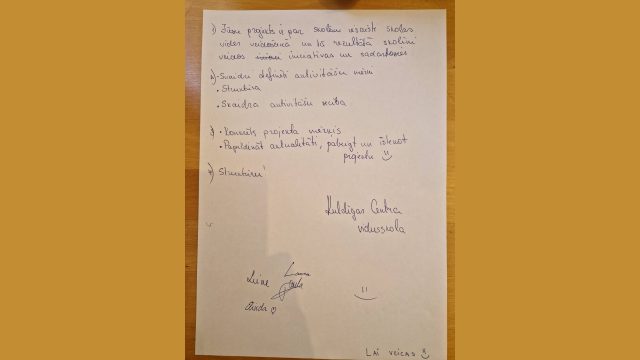 1) Jūsu projekts ir par skolēnu iesaisti skolas
vides veidošanā un tā rezultātā skolēni
veidos inovatīvas un sadarbomes
2) - Skaidri definēti aktivitāšu mērķi
• Struktūra
• Skaidra aktivitāšu
3) • Konkrēts projekta mērķis
• Papildināt aktualitāti, pabeigt un īstenot
projektu
4) Struktūra!
Kuldīgas Centra
vidusskola
Liene Laura
Paula
Sanda
LAI VEICAS